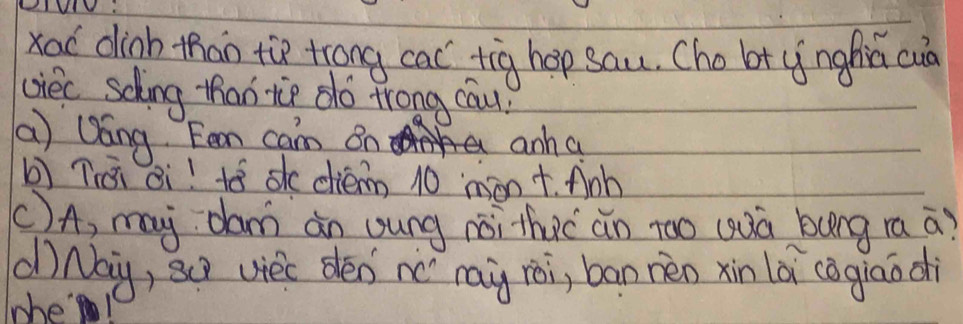 xác định thán từ trong các trg hợp sau. Cho bt ý nghĩa của
việc sdụng thán từ đó trong câu.
a) Vâng. Eem cảm ơn anh ạ
b) Trời ơi! tớ đc điểm 10 môn t. Anh
c) A, mày dám ăn vụng nồi thức ăn tao vừa bưng ra à?
d) Này, sự việc đến nc' này rồi, bạn nên xin lỗi cô giáo đi
nhé!